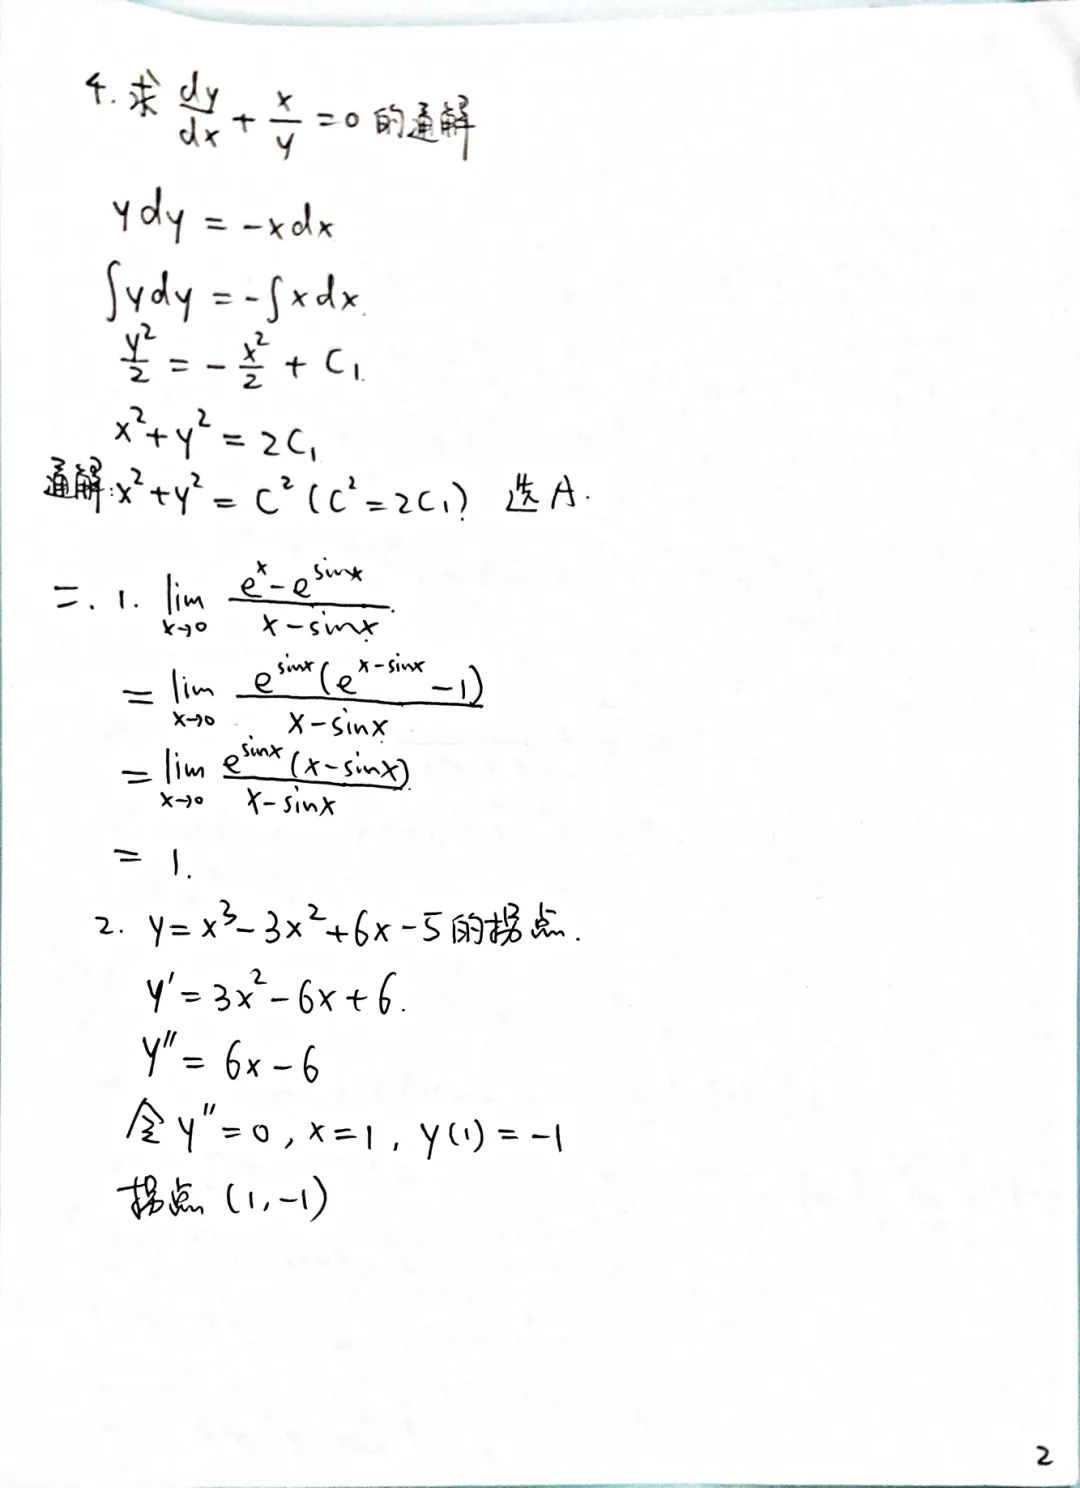 4. 求 dy/dx + x/y = 0 的通解
ydy = -xdx
∫ydy = -∫xdx.
y²/2 = -x²/2 + C₁.
x²+y² = 2C₁
通解: x²+y² = C² (C²=2C₁) 选A.
二. 1. lim x→0 (e^x - e^sinx)/(x-sinx)
= lim x→0 e^sinx(e^(x-sinx) -1)/(x-sinx)
= lim x→0 e^sinx(x-sinx)/(x-sinx)
= 1.
2. y=x³-3x²+6x-5的拐点.
y'=3x²-6x+6.
y''= 6x-6
令y''=0, x=1, y(1)=-1
拐点 (1,-1)
2